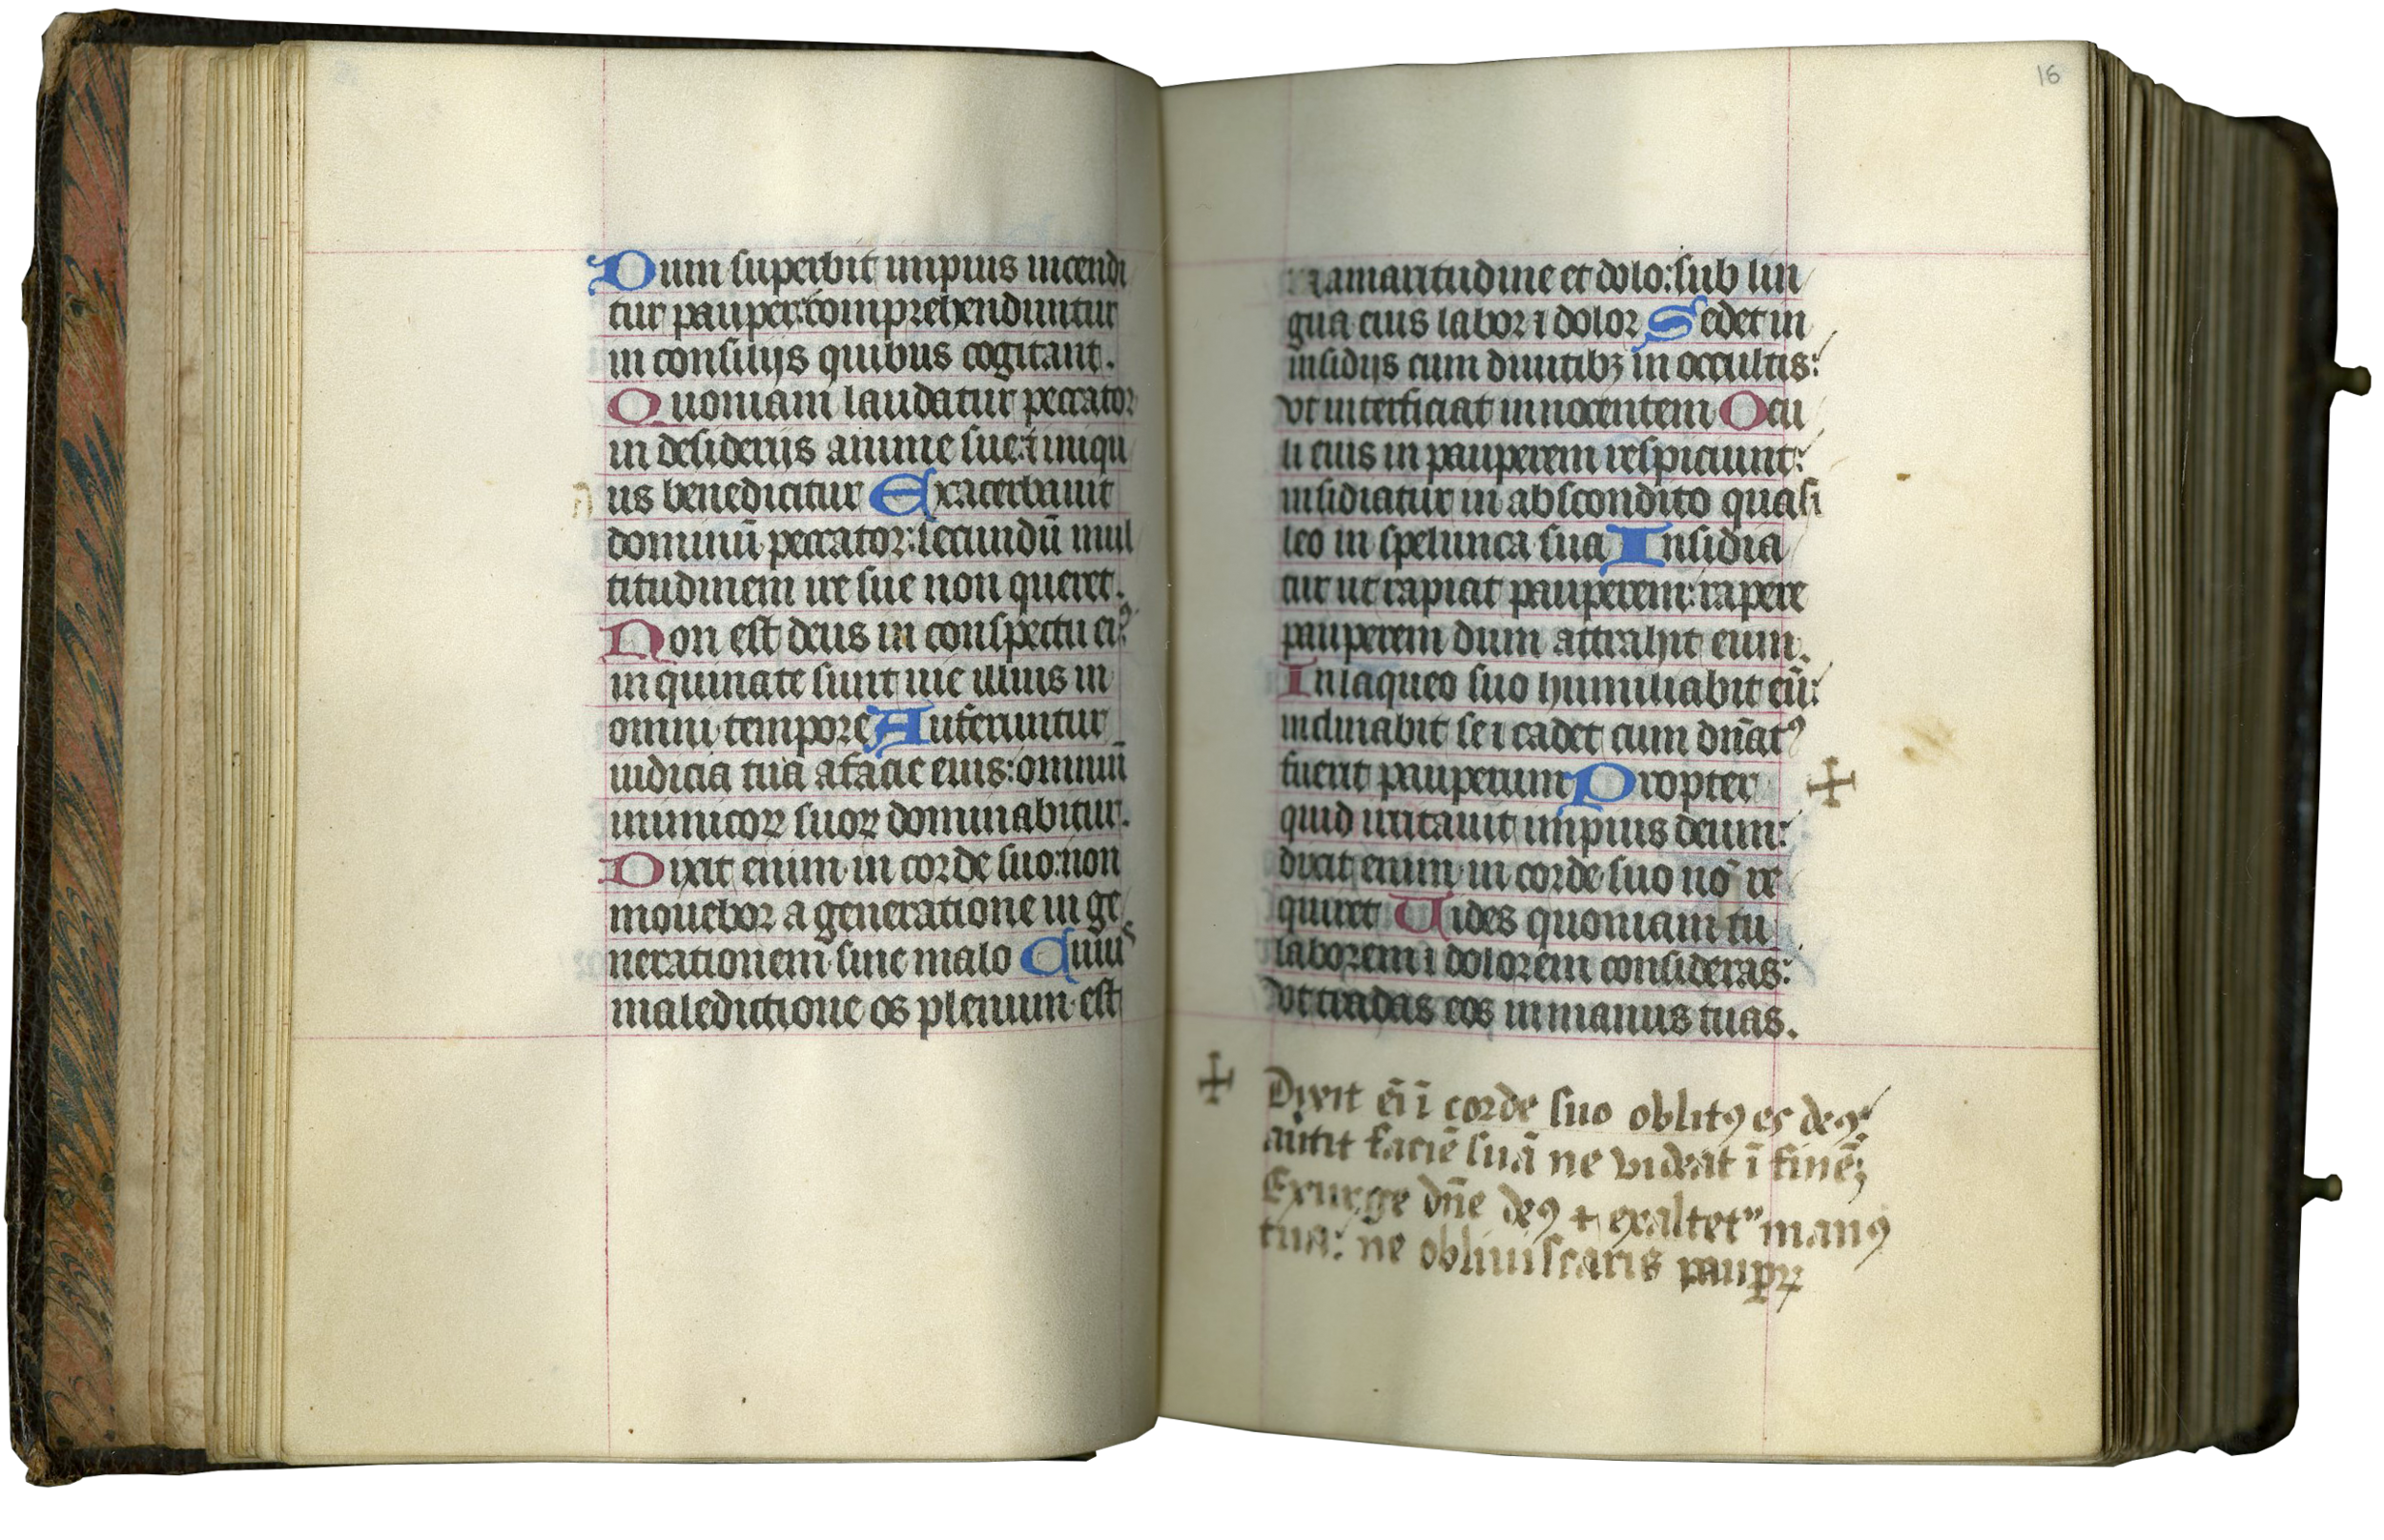 Dum superbit impius incendi
tur pauper: comprehenduntur
in consilijs quibus cogitant.
Quoniam laudatur peccator
in desiderijs anime sue: ⁊ iniqu
us benedicitur Exacerbauit
dominū peccator: secundū mul
titudinem ire sue non queret.
Non est deus in conspectu eiꝰ
inquinate sunt uie illius in
omni tempore Auferuntur
iudicia tua a facie eius: omniū
inimicoꝝ suoꝝ dominabitur.
Dixit enim in corde suo: non
mouebor a generatione in ge
nerationem sine malo Cuius
maledictione os plenum est
16
amaritudine et dolo: sub lin
gua eius labor ⁊ dolor Sedet in
insidijs cum diuitibꝫ in occultis:
vt interficiat innocentem Ocu
li eius in pauperem respiciunt:
insidiatur in abscondito quasi
leo in spelunca sua Insidia
tur ut rapiat pauperem: rapere
pauperem dum attrahit eum.
In laqueo suo humiliabit eū:
inclinabit se ⁊ cadet cum dn̄atꝰ
fuerit pauperum Propter ✢
quid irritauit impius deum:
dixit enim in corde suo nō re
quiret Uides quoniam tu
laborem ⁊ dolorem consideras:
vt tradas eos in manus tuas.
✢ Dixit ēi ī corde suo oblitꝰ es deꝰ
autit faciē suā ne videat ī finē;
Exurge dn̄e deꝰ ⁊ exaltet" manꝰ
tua: ne obliuiscaris pauꝑꝝ